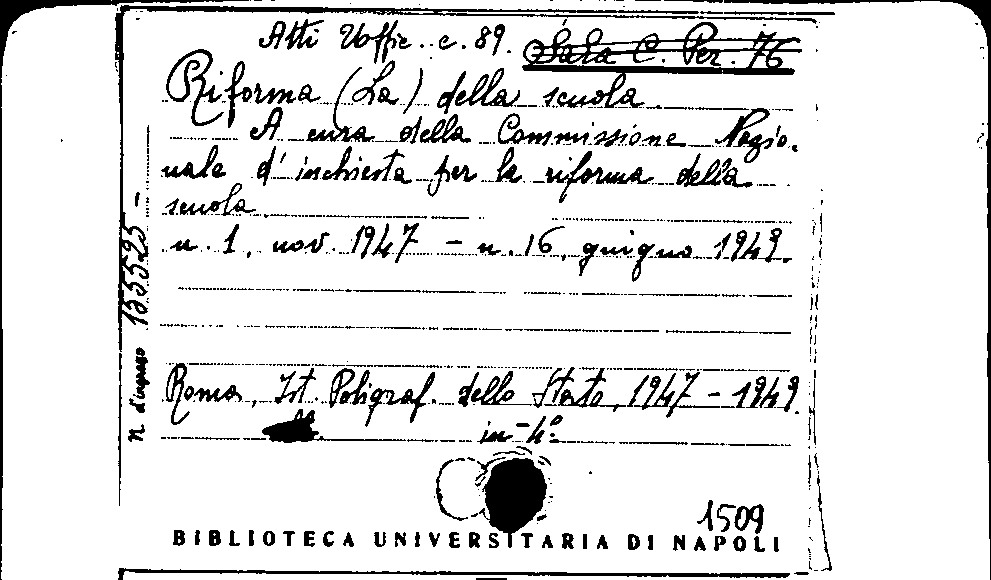 Atti Uffic. c. 89. Sala C. Per. 76
Riforma (La) della scuola.
A cura della Commissione Nazio-
nale d'inchiesta per la riforma della
scuola.
n. 1, nov. 1947 – n. 16, giugno 1949.
n. d'ingresso 155525 -
Roma, Ist. Poligraf. dello Stato, 1947 – 1949.
in-4º
1509
BIBLIOTECA UNIVERSITARIA DI NAPOLI